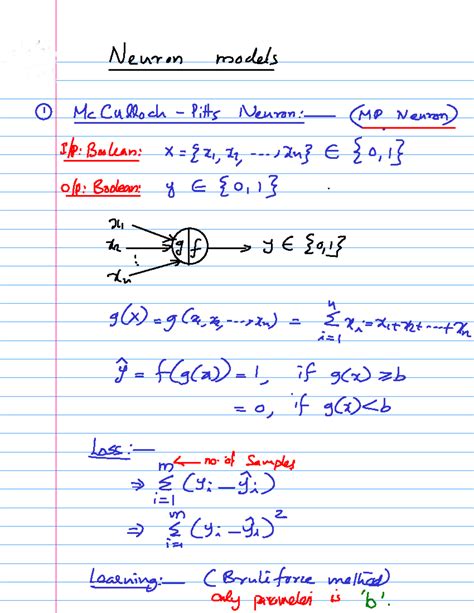 Neuron models
① McCulloch - Pitts Neuron:— (MP Neuron)
I/p: Boolean: x = {x₁, x₂, ----, xₙ} ∈ {0,1}
O/p: Boolean: y ∈ {0,1}
x₁
x₂ g f → y ∈ {0,1}
⋮
xₙ
g(x) = g(x₁, x₂, ----, xₙ) = n Σ i=1 xᵢ = x₁+x₂+---+xₙ
ŷ = f(g(x)) = 1, if g(x) ≥ b
= 0, if g(x) < b
Loss:—
m ← no. of Samples
⇒ Σ i=1 (yᵢ - ŷᵢ)
⇒ m Σ i=1 (yᵢ - ŷᵢ)²
Learning:— (Bruteforce method)
only parameter is 'b'.